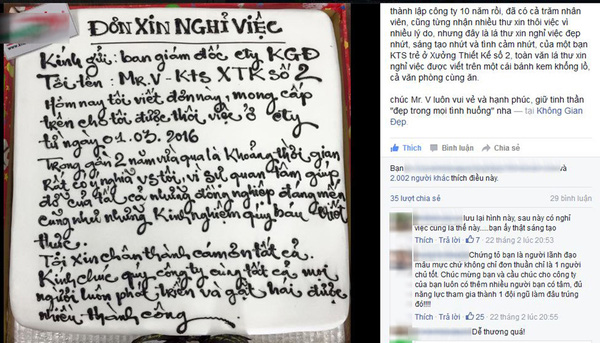 ĐƠN XIN NGHỈ VIỆC
Kính gửi: ban giám đốc cty KGĐ
Tôi tên: Mr.V - Kts XTK số 2
Hôm nay tôi viết đơn này, mong cấp
trên cho tôi được thôi việc ở cty
từ ngày 01.03.2016
Trong gần 2 năm vừa qua là khoảng thời gian
Rất có ý nghĩa với tôi, vì sự quan tâm giúp
đỡ của tất cả những đồng nghiệp đáng mến
cũng như những kinh nghiệm quý báu thiết
thực.
Tôi xin chân thành cảm ơn tất cả.
Kính chúc quý công ty cùng tất cả mọi
người luôn phát triển và gặt hái được
nhiều thành công
thành lập công ty 10 năm rồi, đã có cả trăm nhân
viên, cũng từng nhận nhiều thư xin thôi việc vì
nhiều lý do, nhưng đây là lá thư xin nghỉ việc đẹp
nhứt, sáng tạo nhứt và tình cảm nhứt, của một bạn
KTS trẻ ở Xưởng Thiết Kế số 2, toàn văn lá thư xin
nghỉ việc được viết trên một cái bánh kem khổng lồ,
cả văn phòng cùng ăn.
chúc Mr. V luôn vui vẻ và hạnh phúc, giữ tinh thần
"đẹp trong mọi tình huống" nha — tại Không Gian
Đẹp.
Thích Bình luận Chia sẻ
Bạn và
2.002 người khác thích điều này.
35 lượt chia sẻ 29 bình luận
lưu lại hình này, sau này có nghỉ
việc cung la thế này.....bạn ấy thật sáng tạo
Thích · Trả lời · 7 · 22 tháng 2 lúc 20:53
Chứng tỏ bạn là người lãnh đạo
mẫu mực chứ không chỉ đơn thuần chỉ là 1 người
chủ tốt. Chúc mừng bạn và cầu chúc cho công ty
của bạn luôn có thêm nhiều người bạn có tâm, đủ
năng lực tham gia thành 1 đội ngũ làm đâu trúng
đó!!!!
Thích · Trả lời · 25 · 22 tháng 2 lúc 20:55
Dễ thương quá!